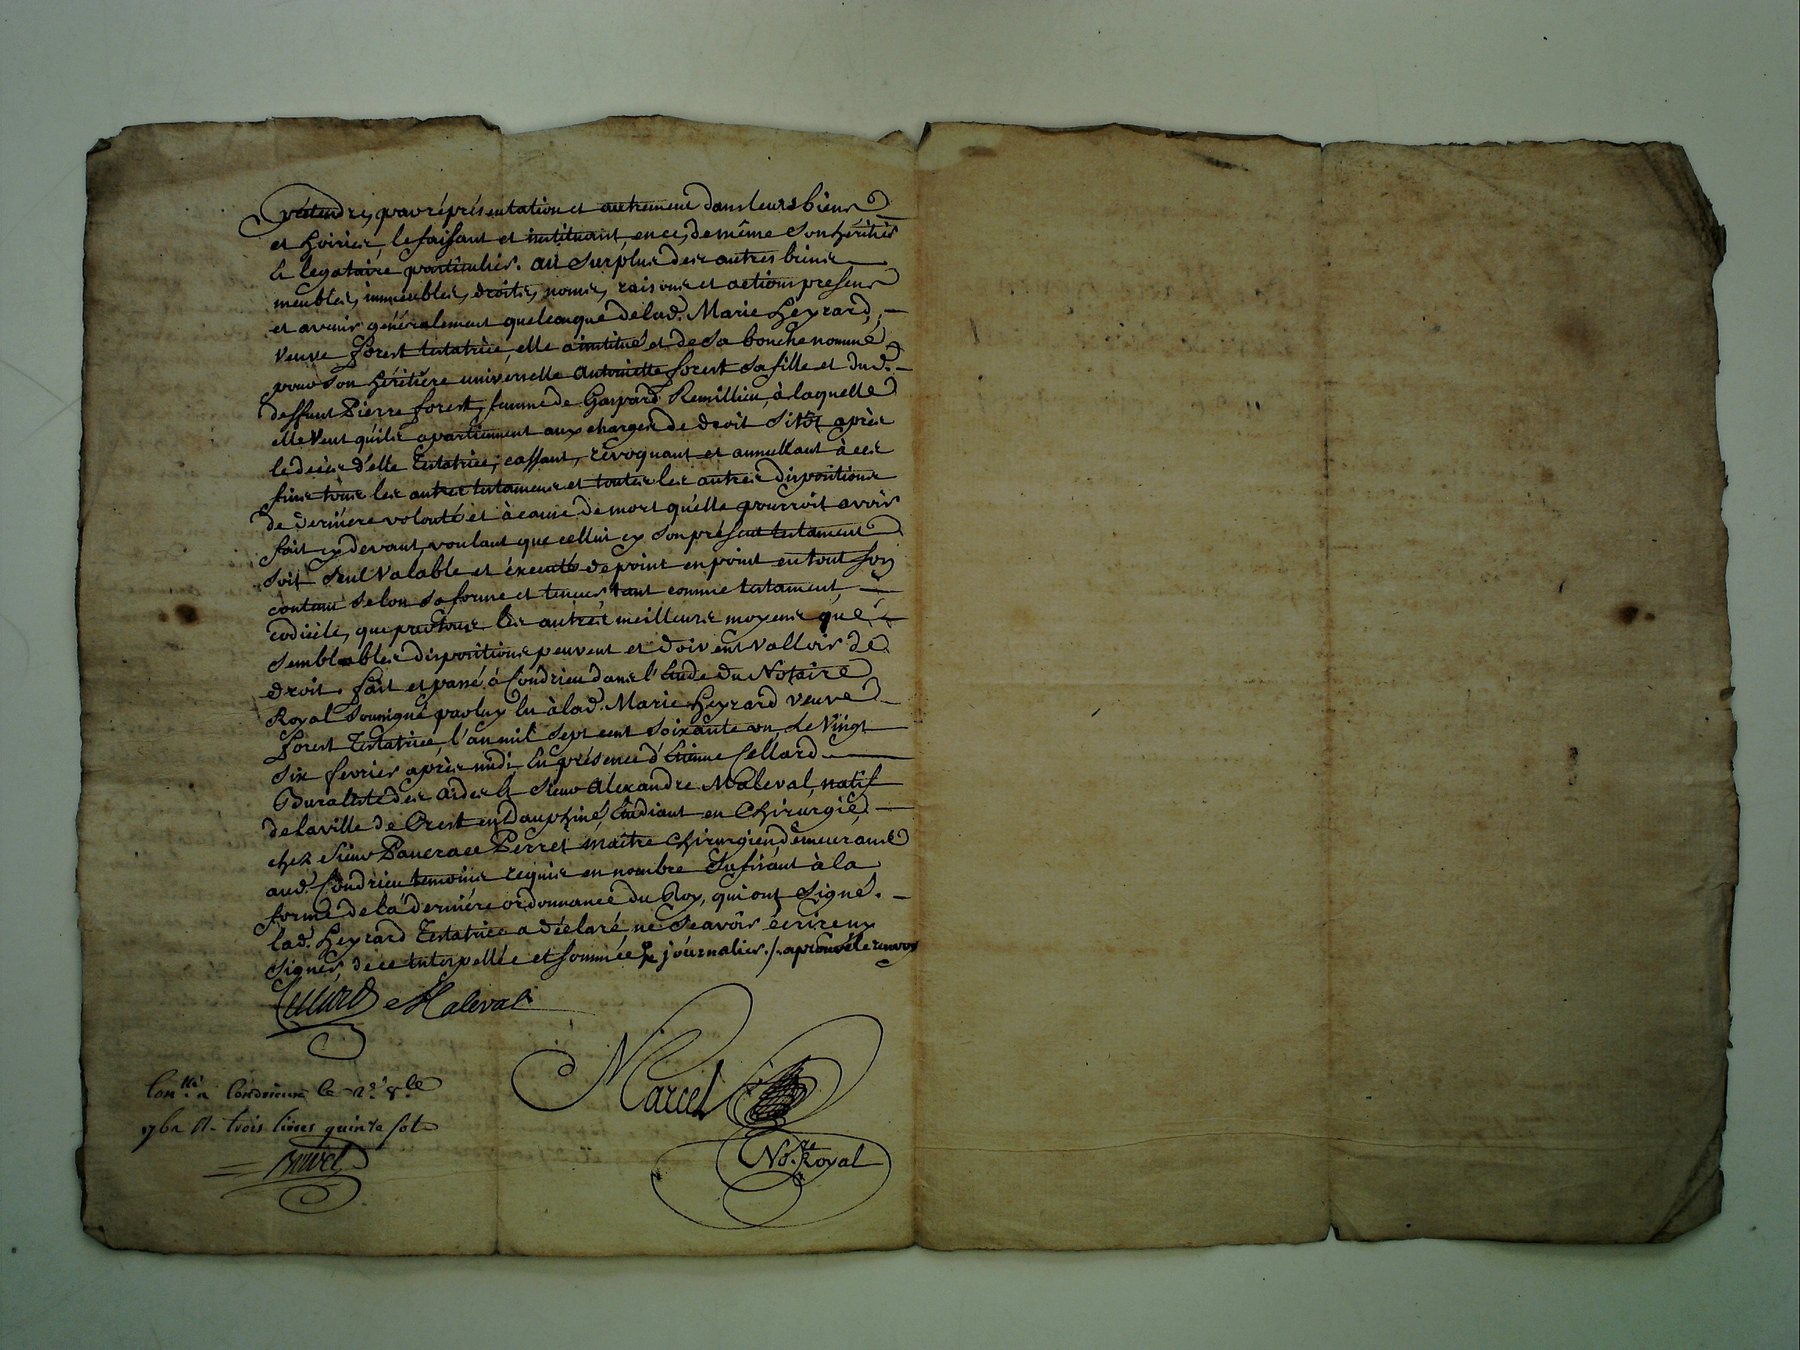 prétendre, par représentation et autrement dans leurs biens
et hoiries, le faisant et instituant, en ce, de même son héritier
& legataire particulier. au surplus des autres biens
meubles, immeubles, droits, noms, raisons et actions presens
et avenir généralement quelconque de lad. Marie Heyrard,
veuve forest testatrice, elle a institué et de sa bouche nommé
pour son héritière universelle Antoinette forest sa fille et dud.
deffunt Pierre forest, femme de Gaspard Remillieu, à laquelle
elle veut qu'ils apartiennent aux charges de droit sitôt après
le decès d'elle testatrice, cassant, révoquant et annullant à ces
fins tous les autres testamens et toutes les autres dispositions
de dernière volonté et à cause de mort qu'elle pourroit avoir
fait cy devant, voulant que celluy cy son présent testament
soit seul valable et éxecuté de point en point en tout son
contenu selon sa forme et teneur, tant comme testament,
codicile, que par tous les autres meilleurs moyens que
semblables dispositions peuvent et doivent valloir de
droit. fait et passé à Condrieu dans l'étude du Notaire
Royal soussigné par luy lu à lad. Marie Heyrard veuve
forest testatrice, l'an mil sept cent soixante un, le vingt
six fevrier après midi en présence d'Etienne Cellard
Buraliste des aides & sieur Alexandre Maleval, natif
de la ville de Crest en Dauphiné, étudiant en chirurgie
chez sieur Pancrace Perret maître chirurgien demeurants
aud. Condrieu temoins requis en nombre sufisant à la
forme de la dernière ordonnance du Roy, qui ont signé.
lad. Heyrard testatrice a déclaré ne sçavoir écrire ny
signer de ce interpellée et sommée & journalier ./. aprouvé le renvoy
Cellard Maleval
Con.llé a Condrieux le 2e 8.bre
Marcel
R.- trois livres quinze sols
No.re Royal